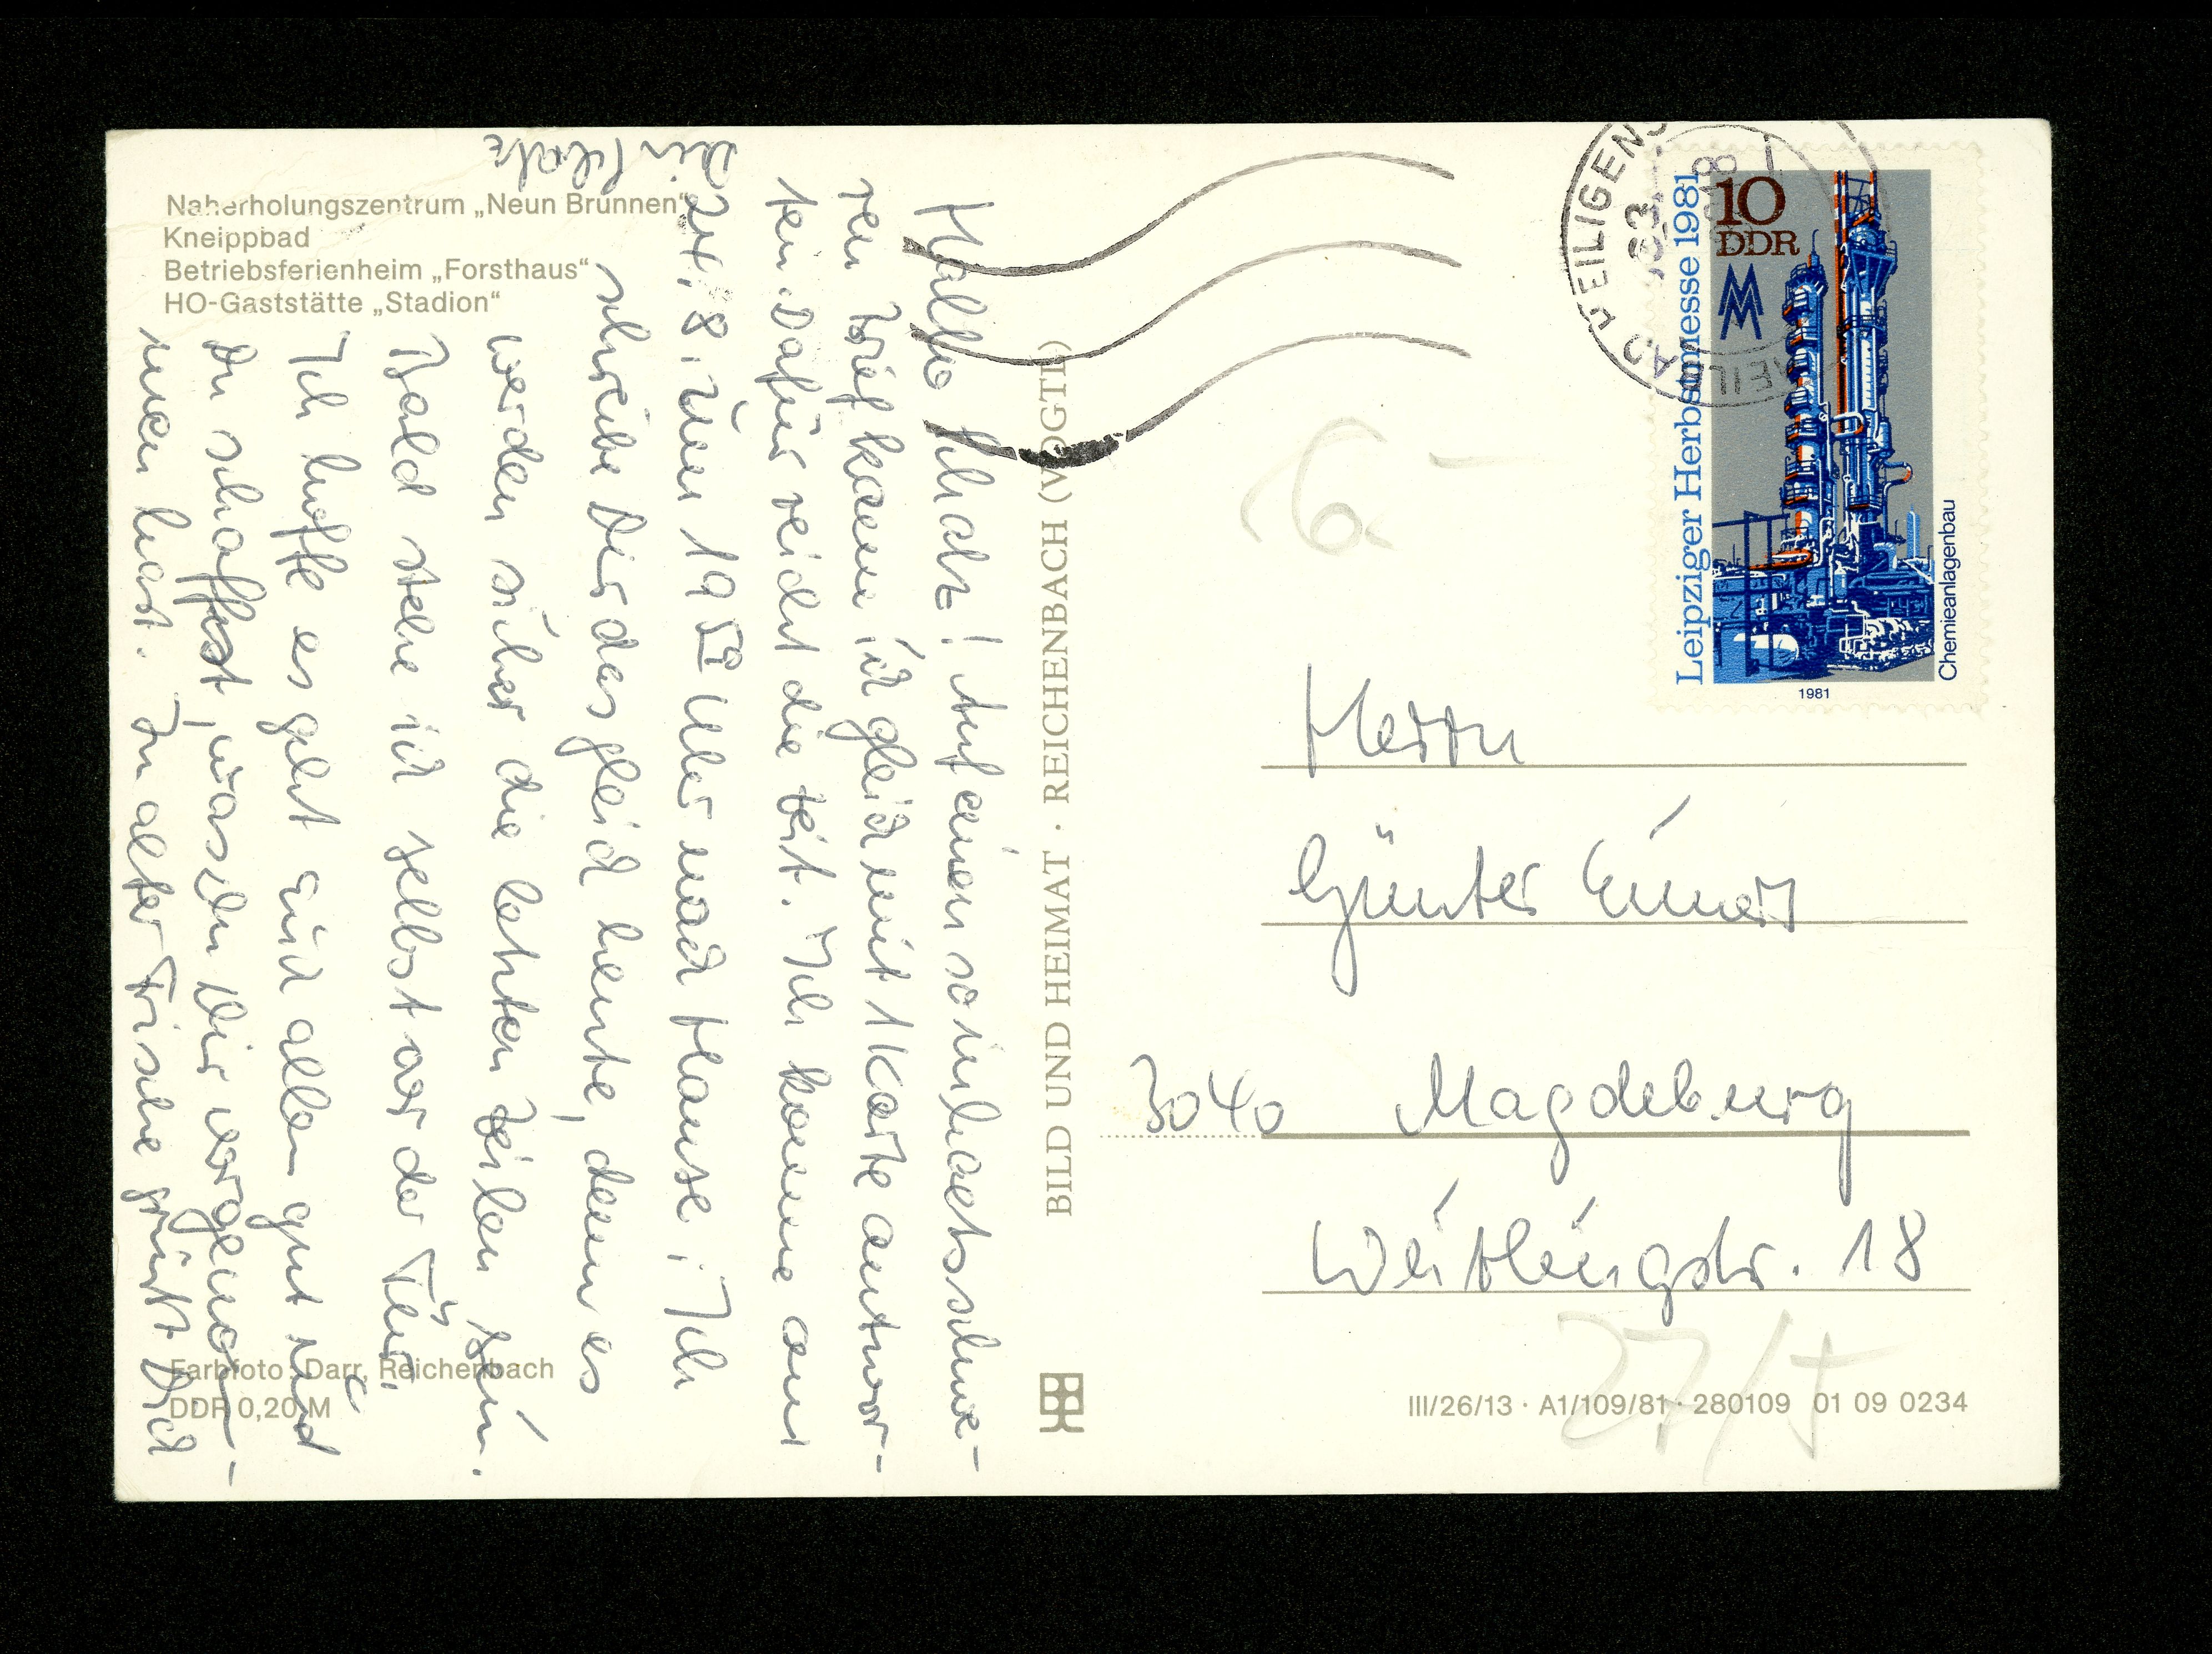 Naherholungszentrum „Neun Brunnen“
Kneippbad
Betriebsferienheim „Forsthaus“
HO-Gaststätte „Stadion“
Hallo Schatz! Auf einen so inhaltsschwe-
ren Brief kann ich gleich mit 1 Karte antwor-
ten. Dafür reicht die Zeit. Ich komme am
24.8. um 19 59 Uhr nach Hause. Ich
schreibe Dir das gleich heute, denn es
werden sicher die letzten Zeilen sein.
Bald stehe ich selbst vor der Tür.
Ich hoffe es geht Euch allen gut und
Du schaffst, was du Dir vorgenom-
men hast. In alter Frische grüßt Dich
Dein Schatz
Farbfoto: Darr, Reichenbach
DDR 0,20 M
BILD UND HEIMAT · REICHENBACH (VOGTL)
Leipziger Herbstmesse 1981
10
DDR
MM
Chemieanlagenbau
1981
HEILIGENS
563
Herrn
Günter
3040 Magdeburg
Weitlingstr. 18
27/
III/26/13 · A1/109/81 · 280109 01 09 0234